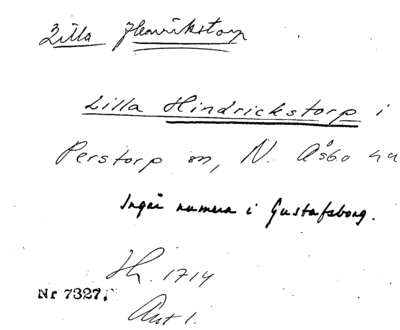 Lilla Henrikstorp
Lilla Hindrickstorp i
Perstorp sn, N. Åsbo hd
Ingår numera i Gustafsborg.
Hh. 1714
Nr 7327.
Ant 1.